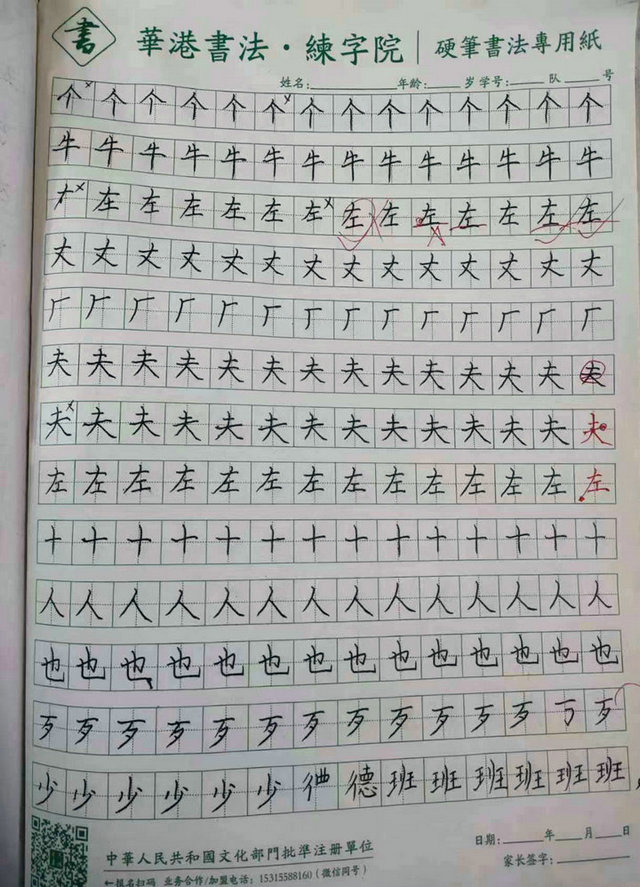 書
華港書法·練字院 硬筆書法專用紙
姓名: 年齡: 岁 学号: 队 号
个个个个个个个个个个个个个个
牛牛牛牛牛牛牛牛牛牛牛牛牛牛
左左左左左左左左左左左左左
丈丈丈丈丈丈丈丈丈丈丈丈丈丈
厂厂厂厂厂厂厂厂厂厂厂厂厂厂
夫夫夫夫夫夫夫夫夫夫夫夫夫夫
夫夫夫夫夫夫夫夫夫夫夫夫夫夫
左左左左左左左左左左左左左左
十十十十十十十十十十十十十十
人人人人人人人人人人人人人人
也也也也也也也也也也也也也也
歹歹歹歹歹歹歹歹歹歹歹歹歹
少少少少少少德班班班班班班
中華人民共和國文化部門批準注册單位
←报名扫码 业务合作/加盟电话：15315588160（微信同号）
日期: 年 月 日
家长签字: